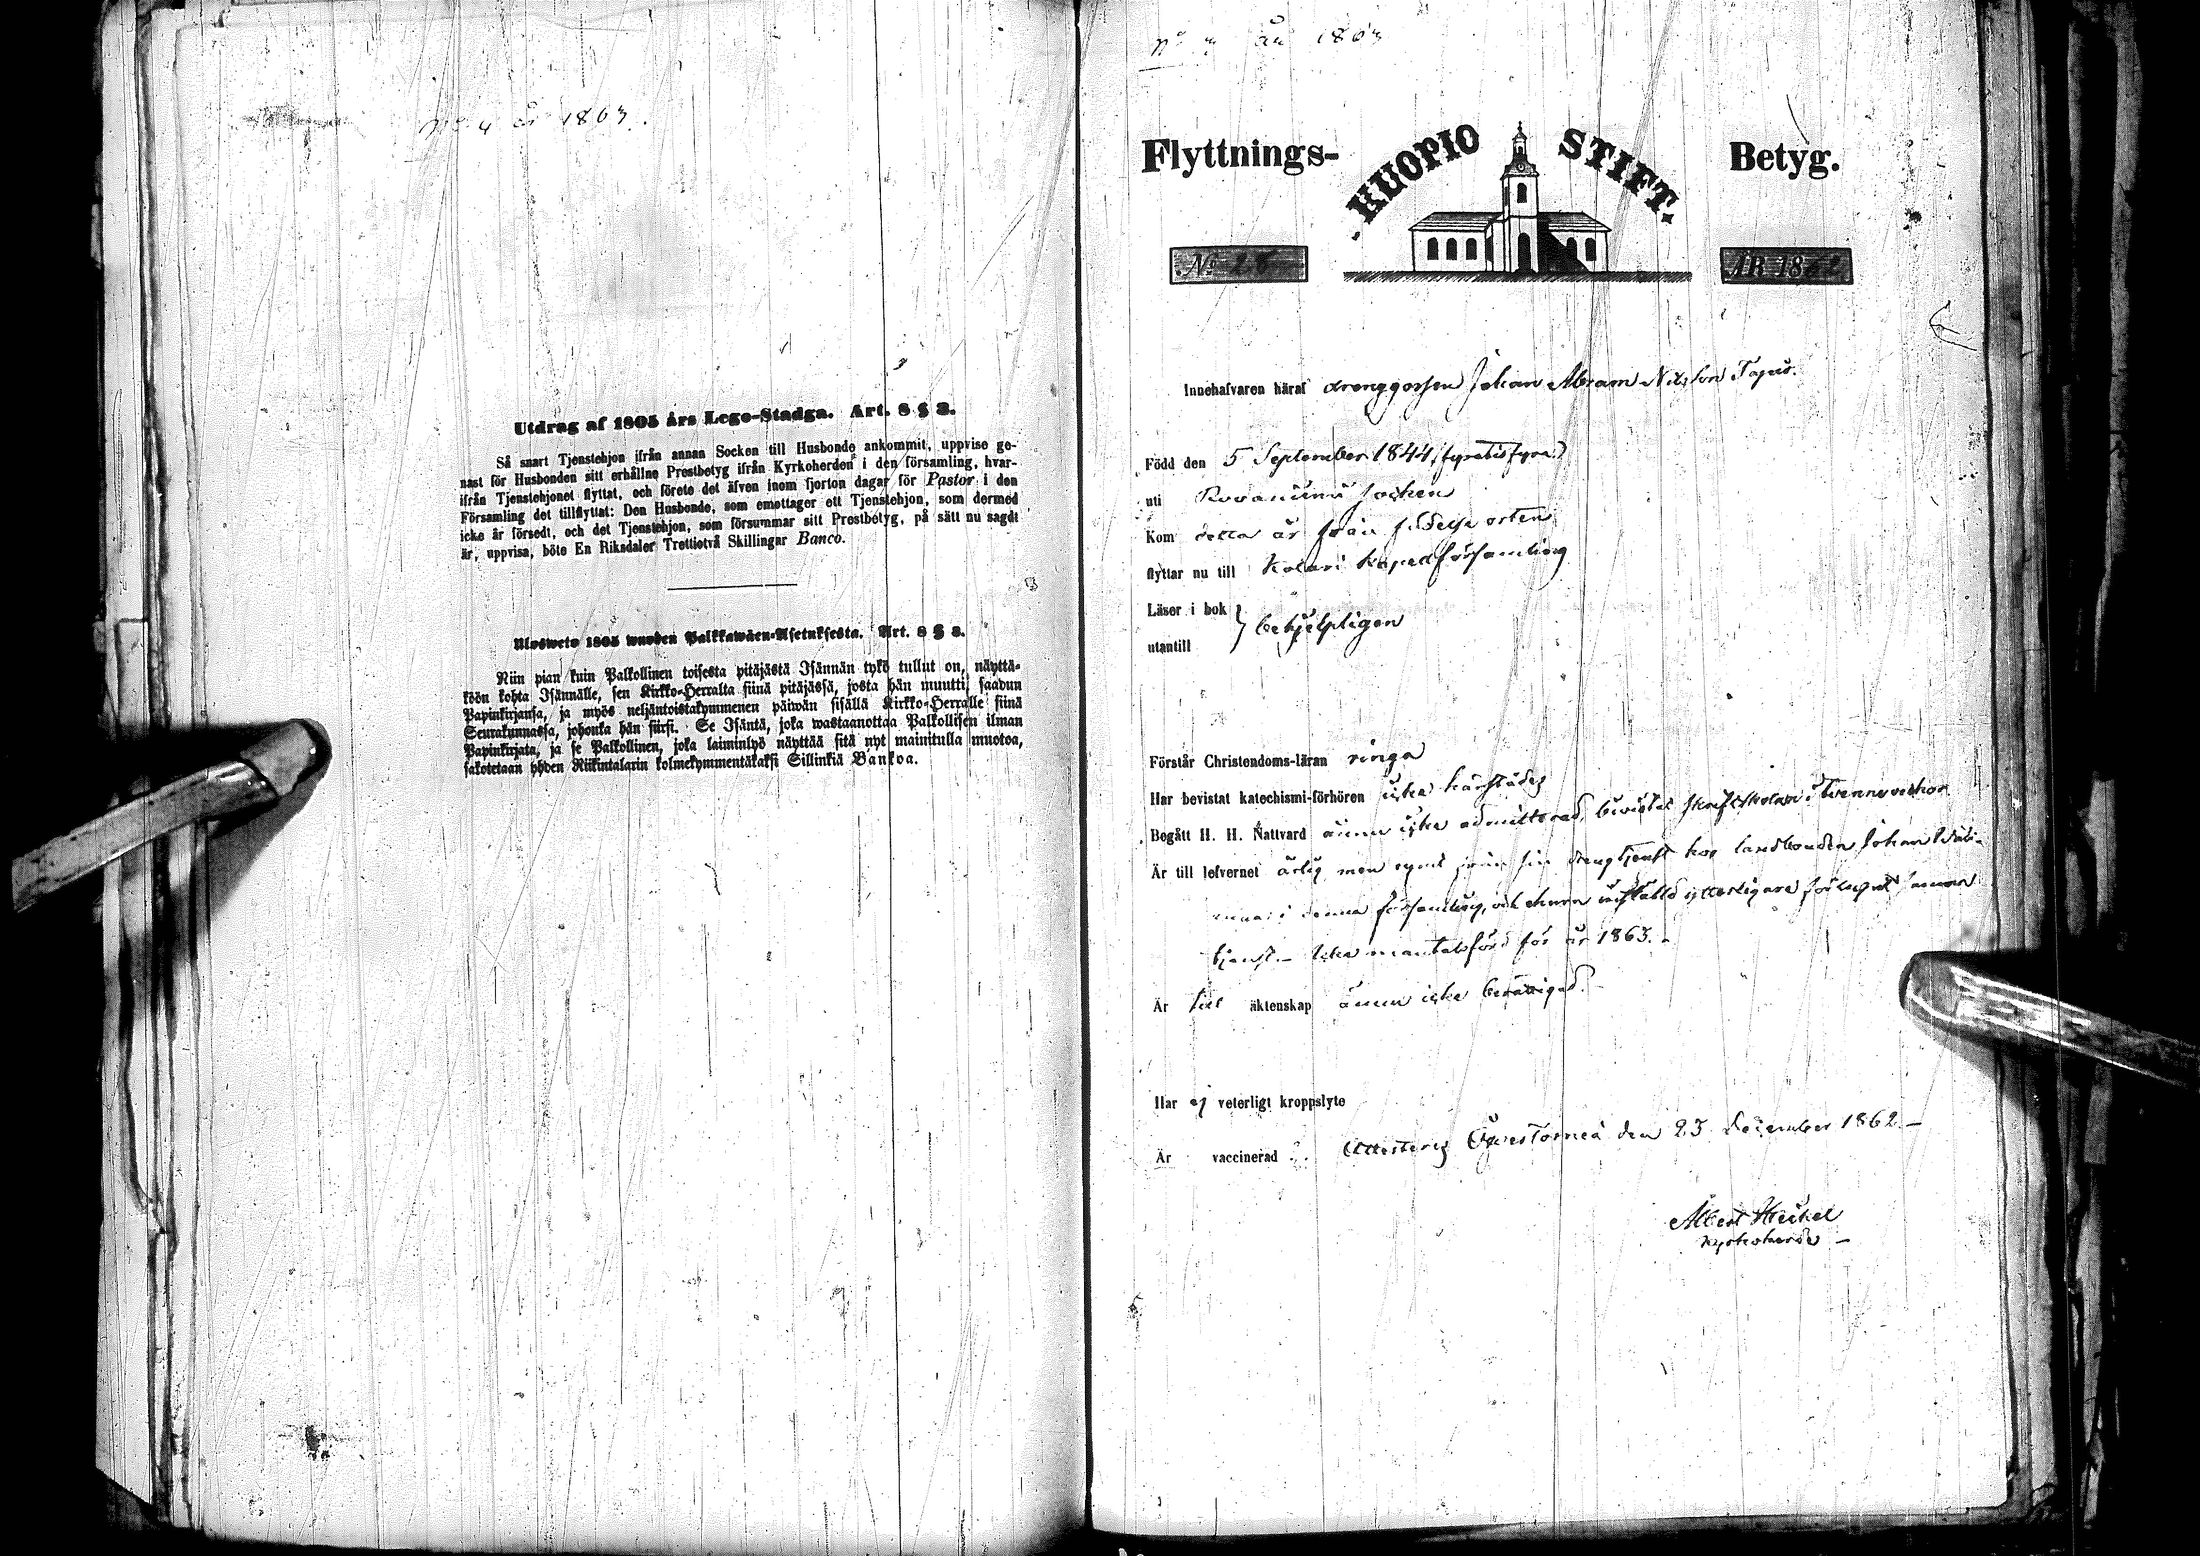 No 4 år 1863.
Utdrag af 1805 års Lego-Stadga. Art. 8 § 3.
Så snart Tjenstehjon ifrån annan Socken till Husbonde ankommit, uppvise ge-
nast för Husbonden sitt erhållne Prestbetyg ifrån Kyrkoherden i den församling, hvar-
ifrån Tjenstehjonet flyttat, och förete det äfven inom fjorton dagar för Pastor i den
Församling det tillflyttat: Den Husbonde, som emottager ett Tjenstehjon, som dermed
icke är försedt, och det Tjenstehjon, som försummar sitt Prestbetyg, på sätt nu sagdt
är, uppvisa, böte En Riksdaler Trettiotvå Skillingar Banco.
Ulosweto 1805 wuoden Palkkawäen-Asetuksesta. Art. 8 § 3.
Niin pian kuin Palkollinen toisesta pitäjästä Isännän tykö tullut on, näyttä-
köön kohta Isännälle, sen Kirkko-Herralta siinä pitäjässä, josta hän muutti, saadun
Papinkirjansa, ja myös neljäntoistakymmenen päiwän sisällä Kirkko-Herralle siinä
Seurakunnassa, johonka hän siirsi. Se Isäntä, joka wastaanottaa Palkollisen ilman
Papinkirjata, ja se Palkollinen, joka laiminlyö näyttää sitä nyt mainitulla muotoa,
sakotetaan yhden Riikintalarin kolmekymmentäkaksi Sillinkiä Bankoa.
No 4 år 1863
Flyttnings- KUOPIO STIFT. Betyg.
No 28 ÅR 1862
Innehafvaren häraf drenggossen Johan Abram Nilsson
Född den 5 September 1844 (fyratiofyra)
uti Rovaniemi socken
Kom detta år från orten
flyttar nu till Kolari kapellförsamling
Läser i bok
utantill } behjelpligen
Förstår Christendoms-läran ringa
Har bevistat katechismi-förhören icke härstädes
Begått H. H. Nattvard ännu icke admitterad, bevistat skriftskolan i tvenne veckor
Är till lefvernet ärlig men rymt från sin drengtjenst hos landbonden Johan
i denna församling, och ytterligare annan
tjenst.- Icke mantalsförd för år 1863.-
Är till äktenskap ännu icke berättigad.
Har ej veterligt kroppslyte
Är vaccinerad Attesteras Öfvertorneå den 23 December 1862.-
Albert Heikel
Kyrkoherde -